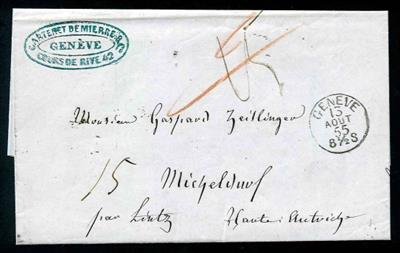 CARTERET DEMIERRE & Co
GENÈVE
COURS DE RIVE 42
GENÈVE
15
AOUT
55
8½S
Monsieur Gaspard Zeitlinger
15
Micheldorf
par Lintz Haute Autriche